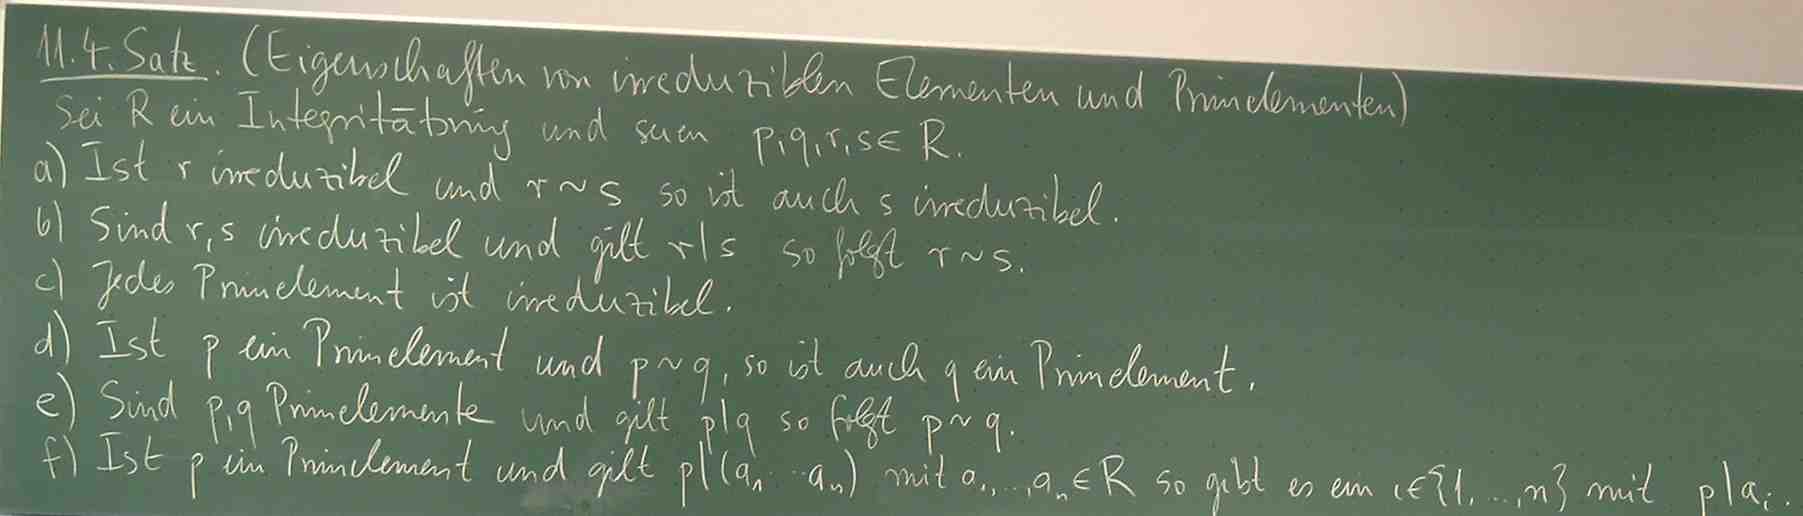 11.4. Satz. (Eigenschaften von irreduziblen Elementen und Primelementen)
Sei R ein Integritätsring und seien p,q,r,s ∈ R.
a) Ist r irreduzibel und r ~ s so ist auch s irreduzibel.
b) Sind r,s irreduzibel und gilt r|s so folgt r ~ s.
c) Jedes Primelement ist irreduzibel.
d) Ist p ein Primelement und p ~ q, so ist auch q ein Primelement.
e) Sind p,q Primelemente und gilt p|q so folgt p ~ q.
f) Ist p ein Primelement und gilt p|(a₁...aₙ) mit a₁,...,aₙ ∈ R so gibt es ein i∈{1,...,n} mit p|aᵢ.